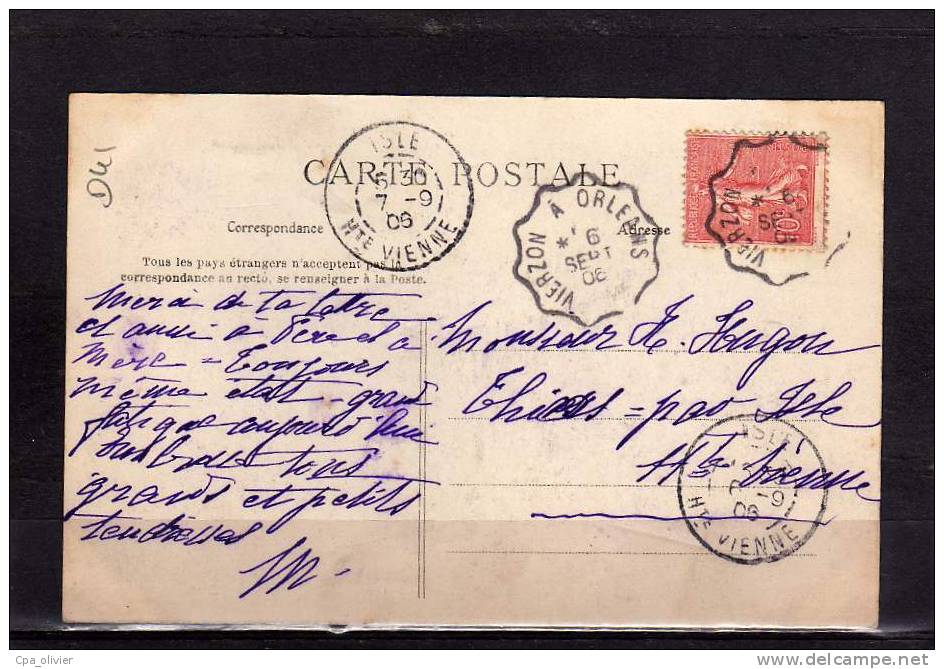 D41
ISLE
5 30
7 -9
06
HTE VIENNE
CARTE POSTALE
VIERZON À ORLEANS
* 6
SEPT
06
REPUBLIQUE FRANÇAISE
10
VIERZON
* 6
SEPT
06
Correspondance
Adresse
Tous les pays étrangers n'acceptent pas la
correspondance au recto, se renseigner à la Poste.
Merci de ta lettre
et aussi a Père et a
Mère = Toujours
même état grand
fatigue aujourd'hui
tous
grands et petits
tendresses
M.
Monsieur H. Hugon
Thias = par Isle
Hte Vienne
ISLE
-9
06
HTE VIENNE
Cpa_olivier
delcampe.net